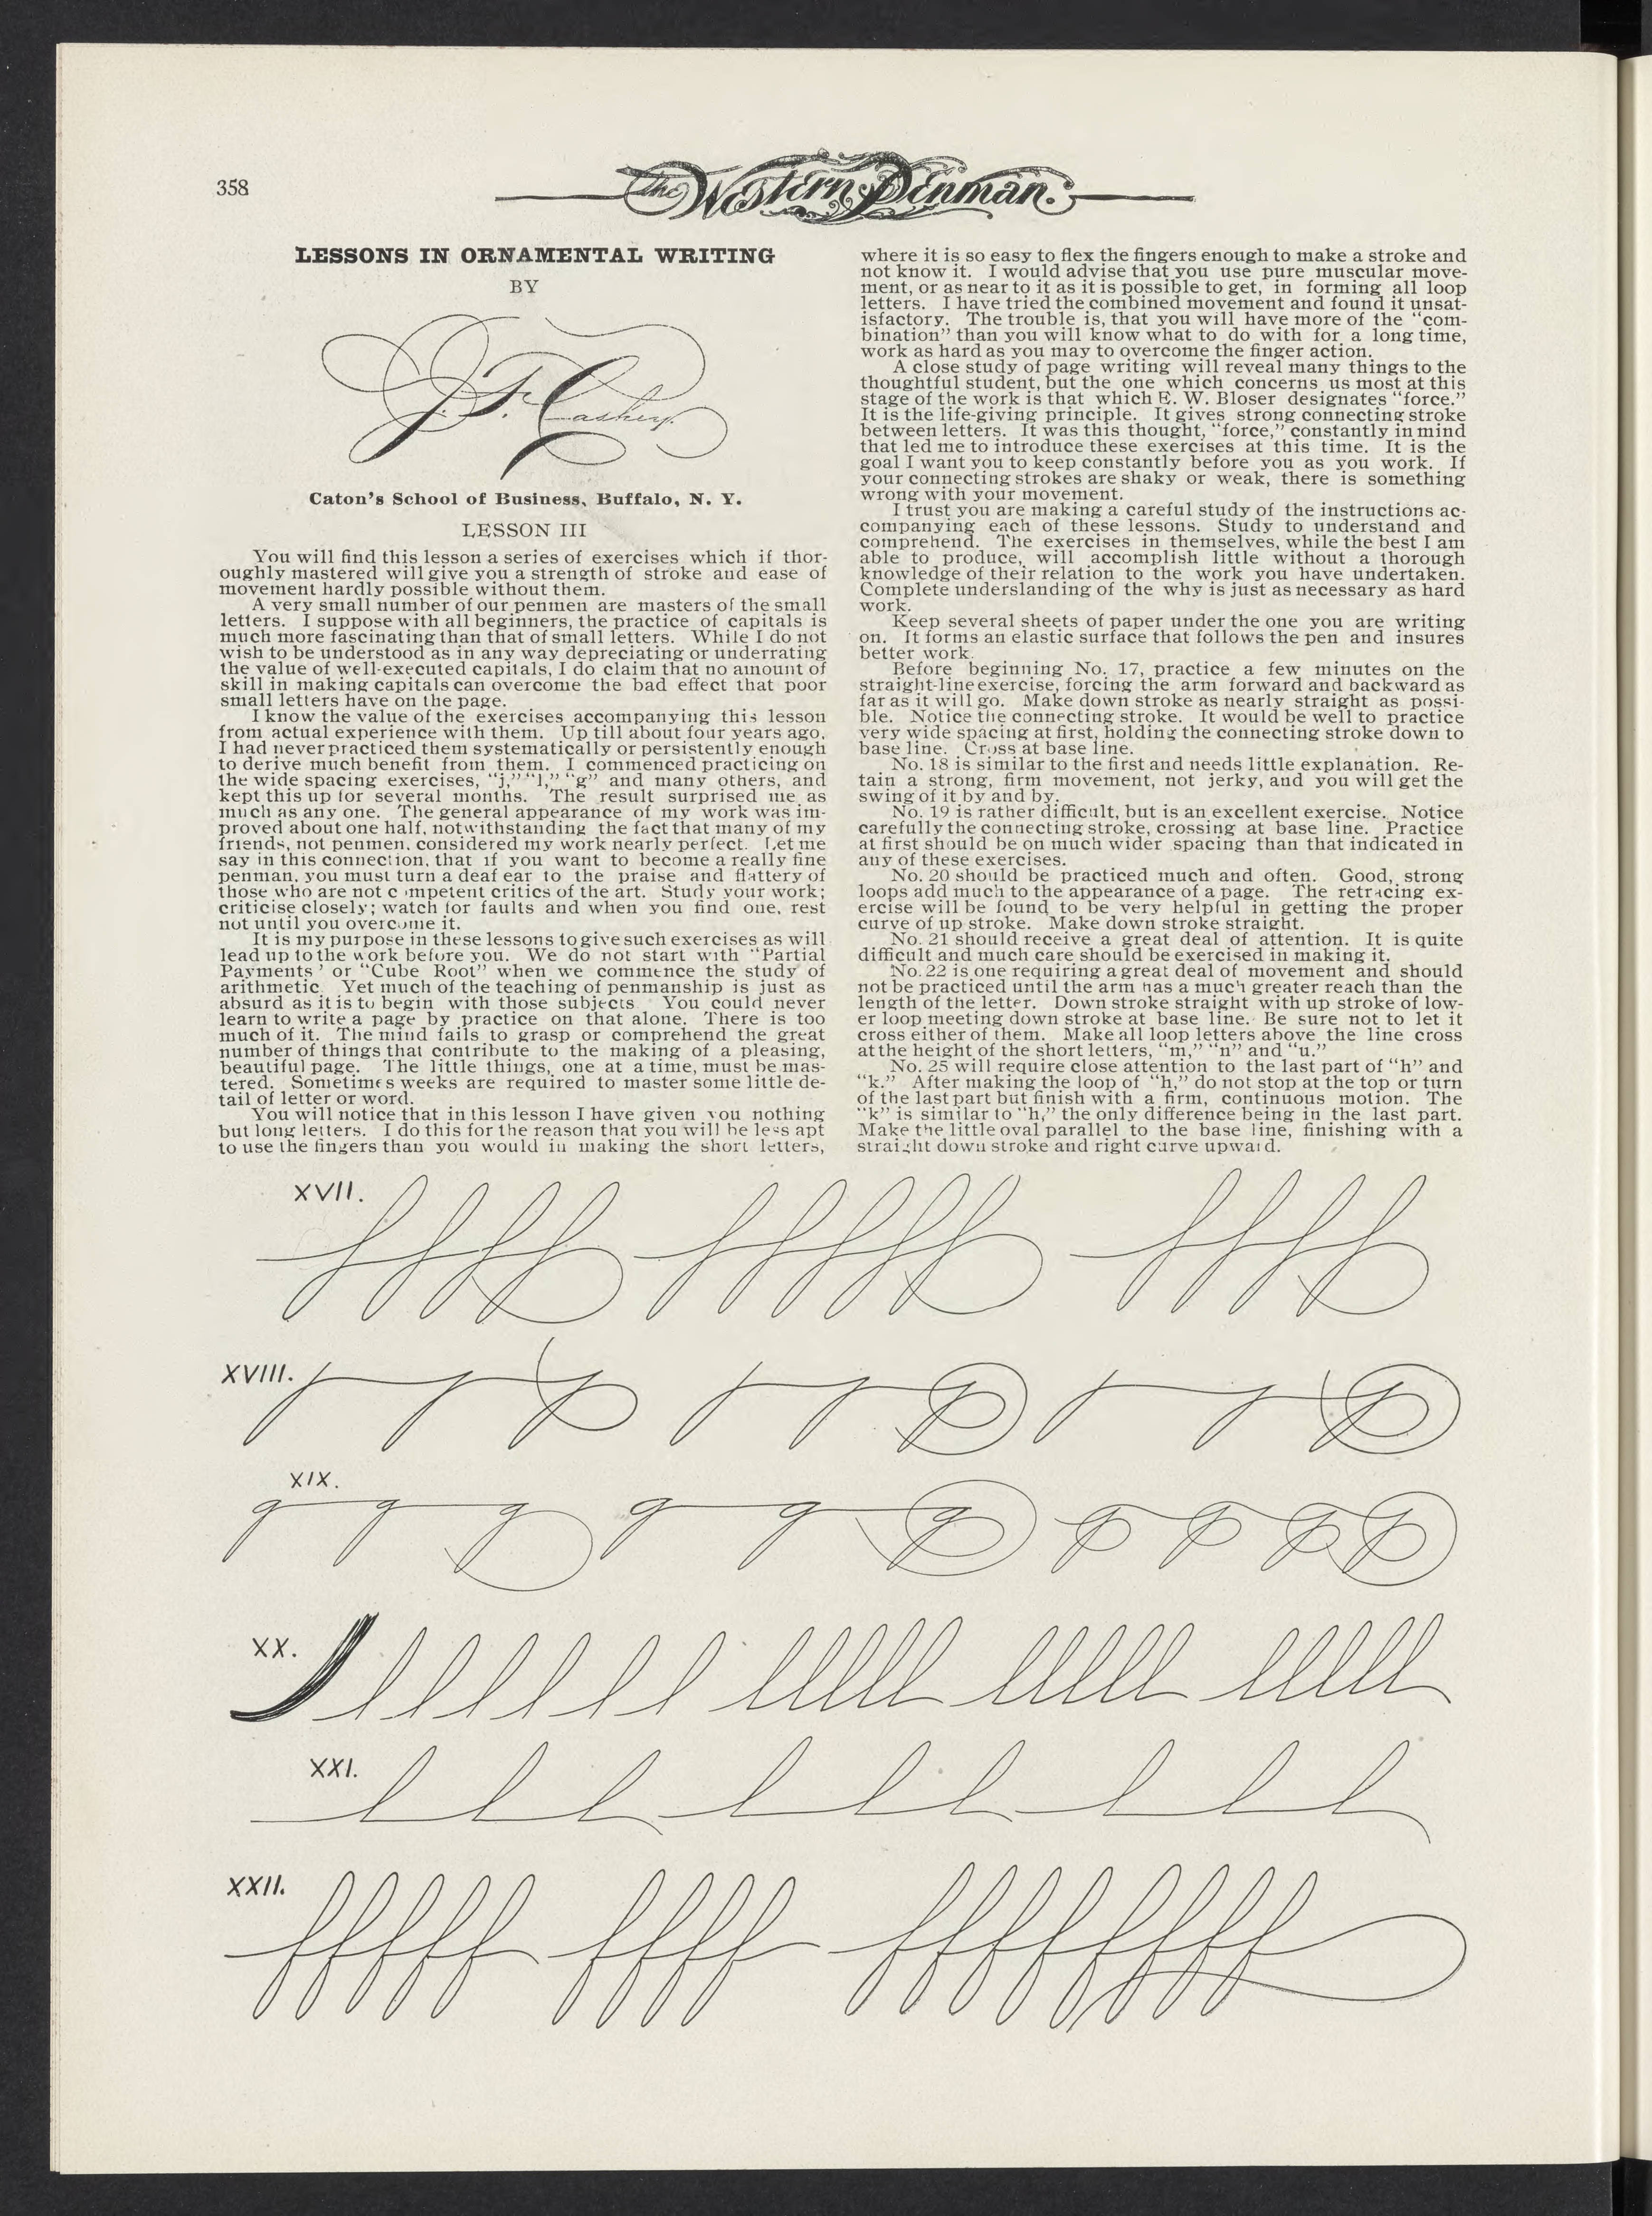 358
The Western Penman.
LESSONS IN ORNAMENTAL WRITING
BY
J. F. Caskey.
Caton's School of Business, Buffalo, N. Y.
LESSON III
You will find this lesson a series of exercises which if thor-
oughly mastered will give you a strength of stroke and ease of
movement hardly possible without them.
A very small number of our penmen are masters of the small
letters. I suppose with all beginners, the practice of capitals is
much more fascinating than that of small letters. While I do not
wish to be understood as in any way depreciating or underrating
the value of well-executed capitals, I do claim that no amount of
skill in making capitals can overcome the bad effect that poor
small letters have on the page.
I know the value of the exercises accompanying this lesson
from actual experience with them. Up till about four years ago,
I had never practiced them systematically or persistently enough
to derive much benefit from them. I commenced practicing on
the wide spacing exercises, "j," "l," "g" and many others, and
kept this up for several months. The result surprised me as
much as any one. The general appearance of my work was im-
proved about one half, notwithstanding the fact that many of my
friends, not penmen, considered my work nearly perfect. Let me
say in this connection, that if you want to become a really fine
penman, you must turn a deaf ear to the praise and flattery of
those who are not competent critics of the art. Study your work;
criticise closely; watch for faults and when you find one, rest
not until you overcome it.
It is my purpose in these lessons to give such exercises as will
lead up to the work before you. We do not start with "Partial
Payments' or "Cube Root" when we commence the study of
arithmetic. Yet much of the teaching of penmanship is just as
absurd as it is to begin with those subjects. You could never
learn to write a page by practice on that alone. There is too
much of it. The mind fails to grasp or comprehend the great
number of things that contribute to the making of a pleasing,
beautiful page. The little things, one at a time, must be mas-
tered. Sometimes weeks are required to master some little de-
tail of letter or word.
You will notice that in this lesson I have given you nothing
but long letters. I do this for the reason that you will be less apt
to use the fingers than you would in making the short letters,
where it is so easy to flex the fingers enough to make a stroke and
not know it. I would advise that you use pure muscular move-
ment, or as near to it as it is possible to get, in forming all loop
letters. I have tried the combined movement and found it unsat-
isfactory. The trouble is, that you will have more of the "com-
bination" than you will know what to do with for a long time,
work as hard as you may to overcome the finger action.
A close study of page writing will reveal many things to the
thoughtful student, but the one which concerns us most at this
stage of the work is that which E. W. Bloser designates "force."
It is the life-giving principle. It gives strong connecting stroke
between letters. It was this thought, "force," constantly in mind
that led me to introduce these exercises at this time. It is the
goal I want you to keep constantly before you as you work. If
your connecting strokes are shaky or weak, there is something
wrong with your movement.
I trust you are making a careful study of the instructions ac-
companying each of these lessons. Study to understand and
comprehend. The exercises in themselves, while the best I am
able to produce, will accomplish little without a thorough
knowledge of their relation to the work you have undertaken.
Complete underslanding of the why is just as necessary as hard
work.
Keep several sheets of paper under the one you are writing
on. It forms an elastic surface that follows the pen and insures
better work.
Before beginning No. 17, practice a few minutes on the
straight-line exercise, forcing the arm forward and backward as
far as it will go. Make down stroke as nearly straight as possi-
ble. Notice the connecting stroke. It would be well to practice
very wide spacing at first, holding the connecting stroke down to
base line. Cross at base line.
No. 18 is similar to the first and needs little explanation. Re-
tain a strong, firm movement, not jerky, and you will get the
swing of it by and by.
No. 19 is rather difficult, but is an excellent exercise. Notice
carefully the connecting stroke, crossing at base line. Practice
at first should be on much wider spacing than that indicated in
any of these exercises.
No. 20 should be practiced much and often. Good, strong
loops add much to the appearance of a page. The retracing ex-
ercise will be found to be very helpful in getting the proper
curve of up stroke. Make down stroke straight.
No. 21 should receive a great deal of attention. It is quite
difficult and much care should be exercised in making it.
No. 22 is one requiring a great deal of movement and should
not be practiced until the arm has a much greater reach than the
length of the letter. Down stroke straight with up stroke of low-
er loop meeting down stroke at base line. Be sure not to let it
cross either of them. Make all loop letters above the line cross
at the height of the short letters, "m," "n" and "u."
No. 25 will require close attention to the last part of "h" and
"k." After making the loop of "h," do not stop at the top or turn
of the last part but finish with a firm, continuous motion. The
"k" is similar to "h," the only difference being in the last part.
Make the little oval parallel to the base line, finishing with a
straight down stroke and right curve upward.
XVII.
XVIII.
XIX.
XX.
XXI.
XXII.